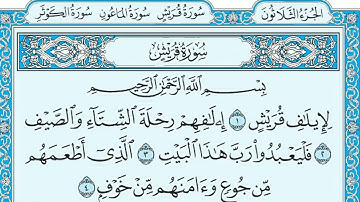 سُورَةُ قُرَيْشٍ سُورَةُ المَاعُونِ سُورَةُ الكَوْثَرِ الجُزْءُ الثَّلَاثُونَ
سُورَةُ قُرَيْشٍ
بِسْمِ ٱللَّهِ ٱلرَّحْمَٰنِ ٱلرَّحِيمِ
لِإِيلَٰفِ قُرَيْشٍ ١ إِۦلَٰفِهِمْ رِحْلَةَ ٱلشِّتَآءِ وَٱلصَّيْفِ
٢ فَلْيَعْبُدُوا۟ رَبَّ هَٰذَا ٱلْبَيْتِ ٣ ٱلَّذِىٓ أَطْعَمَهُم
مِّن جُوعٍ وَءَامَنَهُم مِّنْ خَوْفٍۭ ٤